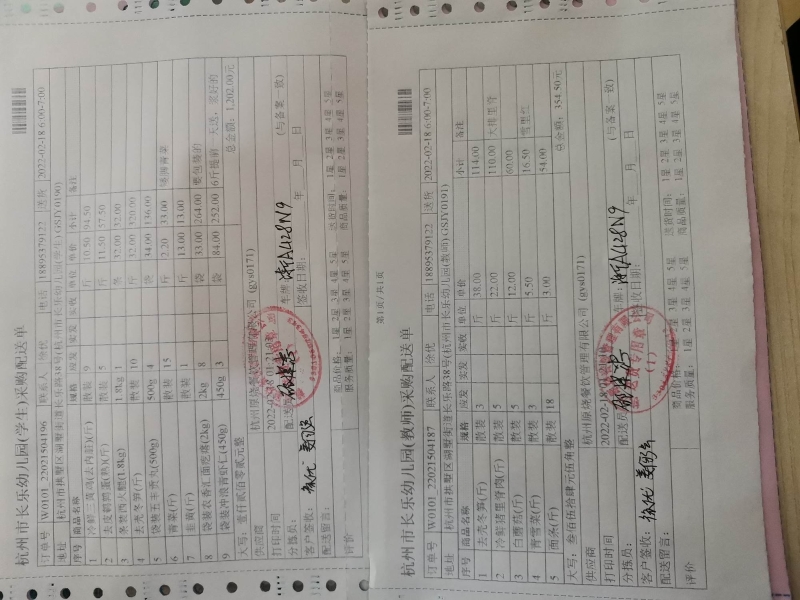 杭州市长乐幼儿园(学生)采购配送单
订单号 W0101_22021504196 联系人 徐优 电话 18895379122 送货 2022-02-18 6:00-7:00
地址 杭州市拱墅区湖墅街道长乐路38号(杭州市长乐幼儿园(学生) GSJY0190)
序号 商品名称 规格 应发 实发 实收 单位 单价 小计 备注
1 冷鲜三黄鸡(去内脏)(斤) 散装 9 斤 10.50 94.50
2 去皮鹌鹑蛋(熟)(斤) 散装 5 斤 11.50 57.50
3 1.8kg 1 32.00 32.00
4 去壳冬笋(斤) 散装 10 斤 32.00 320.00
5 500g 4 袋 34.00 136.00
6 青菜(斤) 散装 15 斤 2.20 33.00
7 韭黄(斤) 散装 1 斤 13.00 13.00
8 2kg 8 袋 33.00 264.00 要包装的
9 450g 3 袋 84.00 252.00
大写:壹仟贰佰零贰元整 总金额: 1,202.00元
供应商 杭州原烧餐饮管理有限公司 (gys0171)
打印时间 2022-02-18
分拣员: 配送员 车牌: 浙A4128N9 (与备案一致)
客户签收: 徐优 签收日期: 年 月 日
配送留言:
评价 商品价格: 1星 2星 3星 4星 5星 送货时间: 1星 2星 3星 4星 5星
服务质量: 1星 2星 3星 4星 5星 商品质量: 1星 2星 3星 4星 5星
第1页/共1页
杭州市长乐幼儿园(教师)采购配送单
订单号 W0101_22021504187 联系人 徐优 电话 18895379122 送货 2022-02-18 6:00-7:00
地址 杭州市拱墅区湖墅街道长乐路38号(杭州市长乐幼儿园(教师) GSJY0191)
序号 商品名称 规格 应发 实发 实收 单位 单价 小计 备注
1 去壳冬笋(斤) 散装 3 斤 38.00 114.00
2 冷鲜猪里脊肉(斤) 散装 5 斤 22.00 110.00 大排里脊
3 白蘑菇(斤) 散装 5 斤 12.00 60.00
4 雪菜(斤) 散装 3 斤 5.50 16.50 雪里红
5 面条(斤) 散装 18 斤 3.00 54.00
大写:叁佰伍拾肆元伍角整 总金额: 354.50元
供应商 杭州原烧餐饮管理有限公司 (gys0171)
打印时间 2022-02-18
分拣员: 配送员 车牌: 浙A4128N9 (与备案一致)
客户签收: 徐优 签收日期: 年 月 日
配送留言:
评价 商品价格: 1星 2星 3星 4星 5星 送货时间: 1星 2星 3星 4星 5星
服务质量: 1星 2星 3星 4星 5星 商品质量: 1星 2星 3星 4星 5星